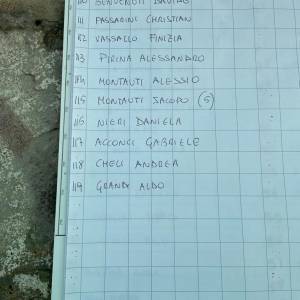 110 BENVENUTI DAVIDE
111 PASSARINI CHRISTIAN
112 VASSALLO FINIZIA
113 PIRINA ALESSANDRO
114 MONTAUTI ALESSIO
115 MONTAUTI JACOPO (S)
116 NIERI DANIELA
117 ACCONCI GABRIELE
118 CHELI ANDREA
119 GRANDI ALDO